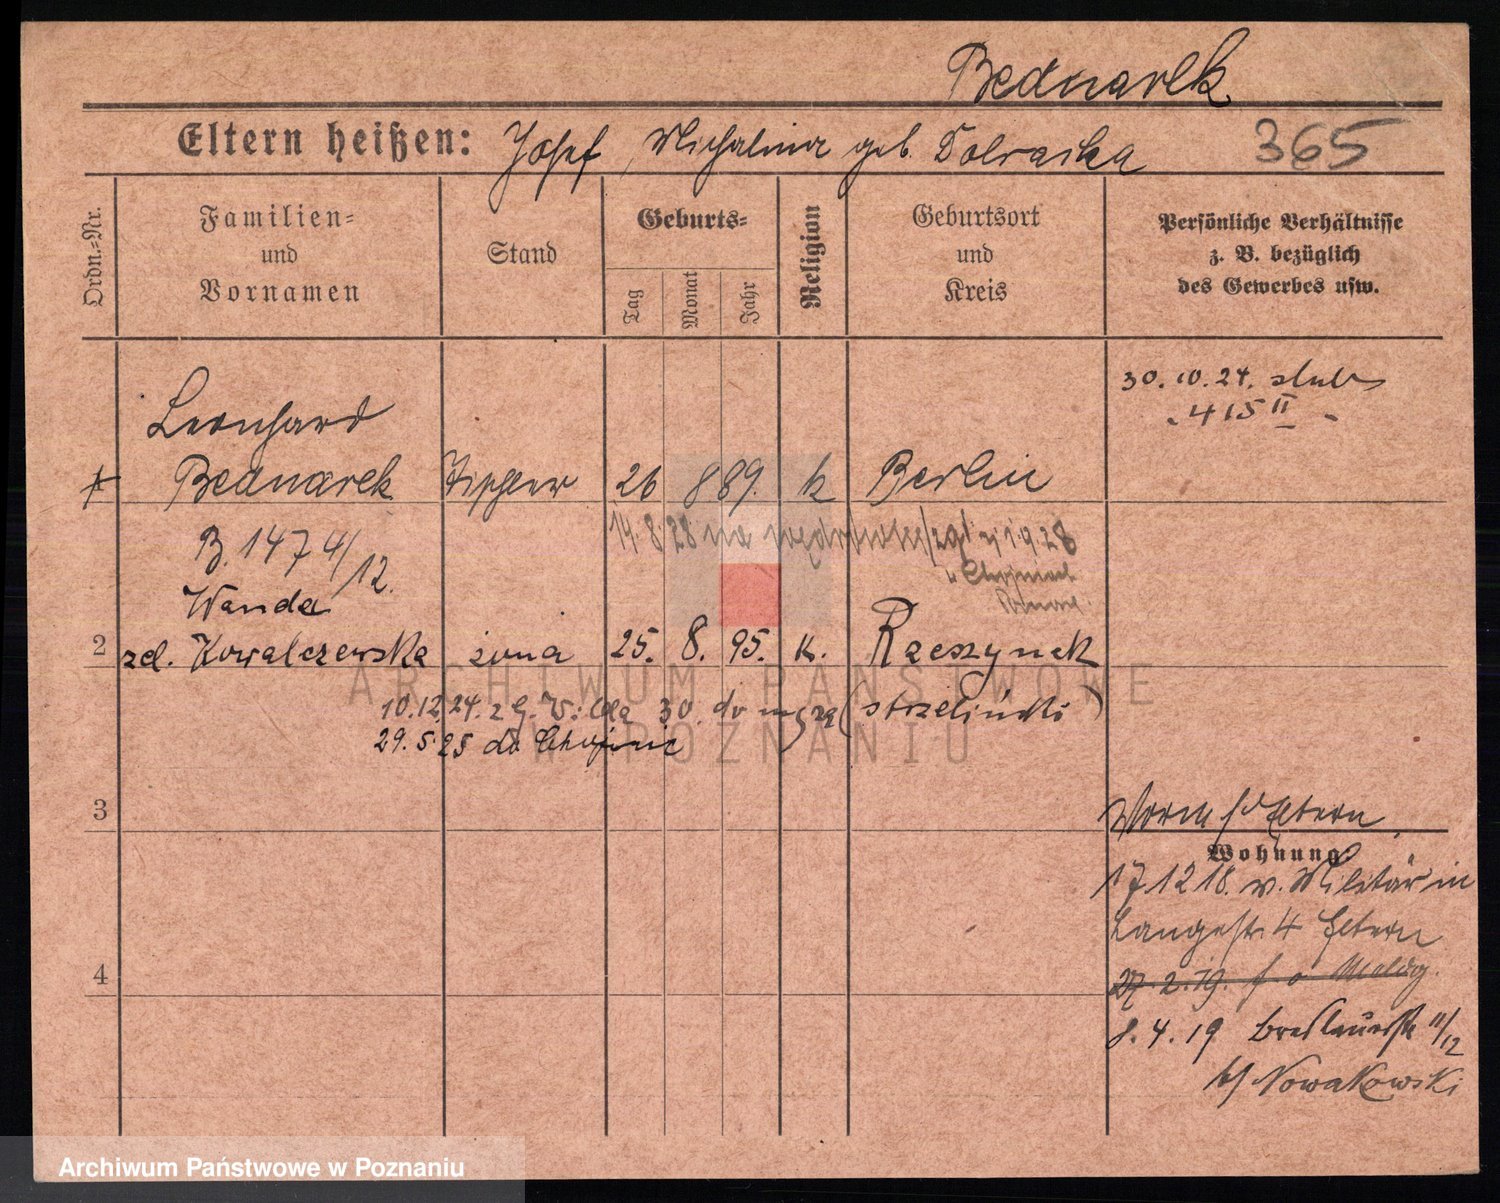 Bednarek
Eltern heißen: Josef, Michalina geb. Dolraska
365
Ordn.=Nr.
Familien=
und
Vornamen
Stand
Geburts=
Tag
Monat
Jahr
Religion
Geburtsort
und
Kreis
Persönliche Verhältnisse
z. B. bezüglich
des Gewerbes usw.
30.10.24.
415 II
Leonhard
1 Bednarek Tischler 26 8 89. k Berlin
14.8.28 na 1.9.28
B. 1474/12.
Wanda
2 zd. Kowalczewska żona 25. 8. 95. k. Raeszynek
10.12.24. z G. Wilda 30. do
29.5.25 do Chojnic
3
Eltern
Wohnung
17.12.18. v. Militär in
Langestr. 4 Eltern
4
27.2.19.
8.4.19 Breslauerstr 11/12
b/ Nowakowski
ARCHIWUM PAŃSTWOWE
W POZNANIU
Archiwum Państwowe w Poznaniu